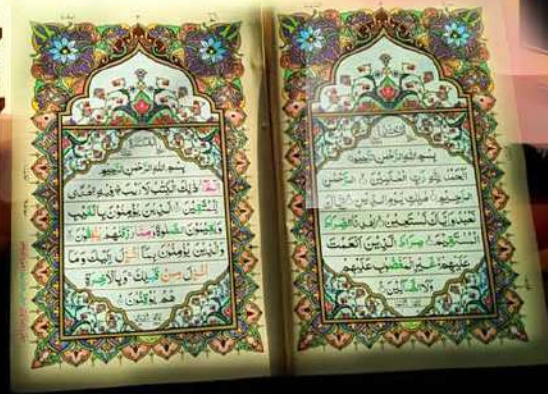 بِسْمِ اللهِ الرَّحْمٰنِ الرَّحِيْمِ
اَلْحَمْدُ لِلّٰهِ رَبِّ الْعٰلَمِيْنَ ۙ الرَّحْمٰنِ
الرَّحِيْمِ ۙ مٰلِكِ يَوْمِ الدِّيْنِ ؕ اِيَّاكَ
نَعْبُدُ وَاِيَّاكَ نَسْتَعِيْنُ ؕ اِهْدِنَا الصِّرَاطَ
الْمُسْتَقِيْمَ ۙ صِرَاطَ الَّذِيْنَ اَنْعَمْتَ
عَلَيْهِمْ ۙ غَيْرِ الْمَغْضُوْبِ عَلَيْهِمْ
وَلَا الضَّآلِّيْنَ
بِسْمِ اللهِ الرَّحْمٰنِ الرَّحِيْمِ
الٓمّٓ ۚ ذٰلِكَ الْكِتٰبُ لَا رَيْبَ ۛ فِيْهِ ۛ هُدًى
لِّلْمُتَّقِيْنَ ۙ الَّذِيْنَ يُؤْمِنُوْنَ بِالْغَيْبِ
وَيُقِيْمُوْنَ الصَّلٰوةَ وَمِمَّا رَزَقْنٰهُمْ يُنْفِقُوْنَ ۙ
وَالَّذِيْنَ يُؤْمِنُوْنَ بِمَآ اُنْزِلَ اِلَيْكَ وَمَآ
اُنْزِلَ مِنْ قَبْلِكَ ۚ وَبِالْاٰخِرَةِ
هُمْ يُوْقِنُوْنَ